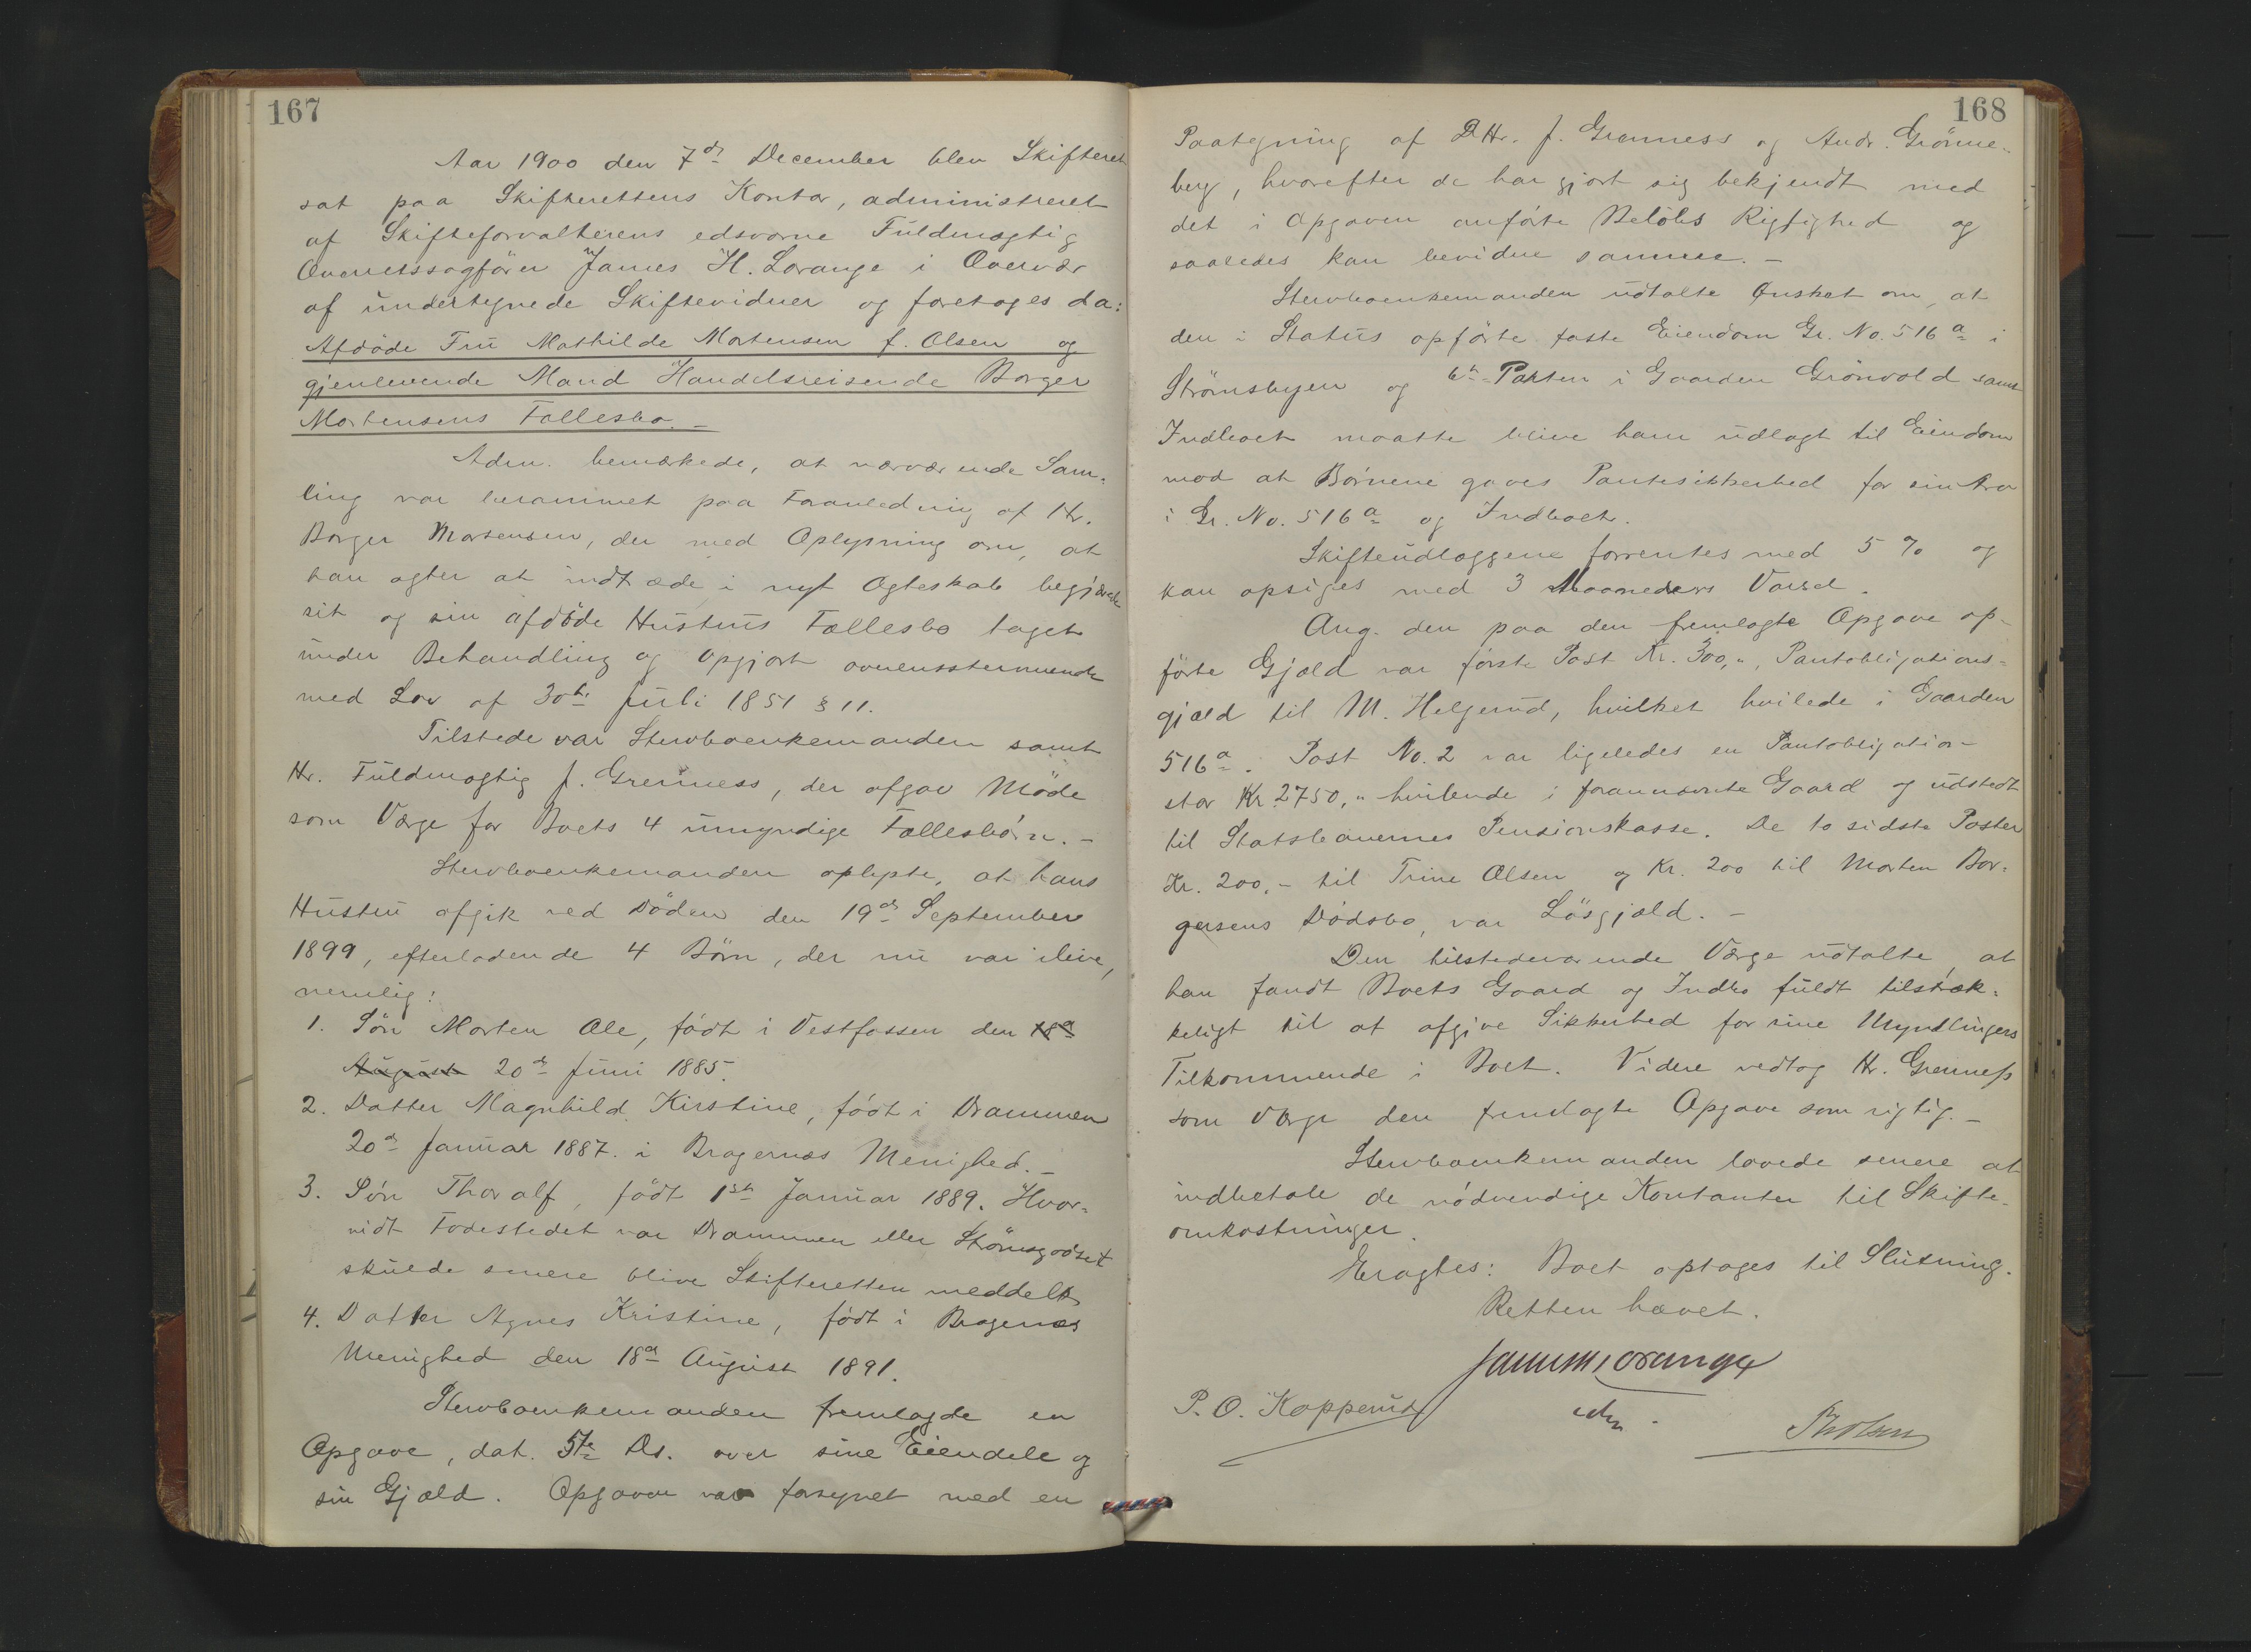 167
Aar 1900 den 7de December blev Skifteret
sat paa Skifterettens Kontor, administreret
af Skifteforvalterens edsvorne Fuldmægtig
Overretssagfører James H. Lorange i Overvær
af undertegnede Skiftevidner og foretoges da:
Afdøde Fru Mathilde Mortensen f. Olsen og
gjenlevende Mand Handelsreisende Borger
Mortensens Fællesbo. –
Adm. bemærkede, at nærværende Sam-
ling var berammet paa Foranledning af Hr.
Borger Mortensen, der med Oplysning om, at
han agter at indtræde i nyt Ægteskab begjærede
sit og sin afdøde Hustrus Fællesbo taget
under Behandling og opgjort overensstemmende
med Lov af 30te Juli 1851 § 11.
Tilstede var Stervboenkemanden samt
Hr. Fuldmægtig J. Grenness, der afgav Møde
som Værge for Boets 4 umyndige Fællesbørn. –
Stervboenkemanden oplyste, at hans
Hustru afgik ved Døden den 19de September
1899, efterladende 4 Børn, der nu var ilive,
nemlig:
1. Søn Morten Ole, født i Vestfossen den 18de
August 20de Juni 1885.
2. Datter Magnhild Kirstine, født i Drammen
20de Januar 1887. i Bragernæs Menighed. –
3. Søn Thoralf, født 1ste Januar 1889. Hvor-
vidt Fødestedet var Drammen eller Strømsgodset
skulde senere blive Skifteretten meddelt
4. Datter Agnes Kristine, født i Bragernæs
Menighed den 18de August 1891.
Stervboenkemanden fremlagde en
Opgave, dat. 5te Ds. over sine Eiendele og
sin Gjæld. Opgaven var forsynet med en
168
Paategning af D Hr. J. Grenness og Andr. Grønne-
berg, hvorefter de har gjort sig bekjendt med
det i Opgaven anførte Beløbs Rigtighed og
saaledes kan bevidne samme. –
Stervboenkemanden udtalte Ønsket om, at
den i Status opførte faste Eiendom Gr. No. 516a i
Strømsbyen og 6te Parten i Gaarden Grønvold samt
Indboet maatte blive ham udlagt til Eiendom
mod at Børnene gaves Pantesikkerhed for sin Arv
i Gr. No. 516a og Indboet.
Skifteudlæggene forrentes med 5 % og
kan opsiges med 3 Maaneders Varsel.
Ang. den paa den fremlagte Opgave op-
førte Gjæld var første Post Kr. 300,", Pantobligations-
gjæld til M. Helgerud, hvilket hvilede i Gaarden
516a. Post No. 2 var ligeledes en Pantobligation
stor Kr. 2750," hvilende i forannævnte Gaard og udstedt
til Statsbanernes Pensionskasse. De to sidste Poster
Kr. 200,– til Trine Olsen og Kr. 200 til Morten Bor-
gersens Dødsbo, var Løsgjæld. –
Den tilstedeværende Værge udtalte, at
han fandt Boets Gaard og Indbo fuldt tilstræk-
keligt til at afgive Sikkerhed for sine Myndlingers
Tilkommende i Boet. Videre vedtog Hr. Grenness
som Værge den fremlagte Opgave som rigtig. –
Stervboenkemanden lovede senere at
indbetale de nødvendige Kontanter til Skifte-
omkostninger.
Eragtes: Boet optages til Slutning.
Retten hævet.
James H. Lorange
P. O. Kopperud
edsv.